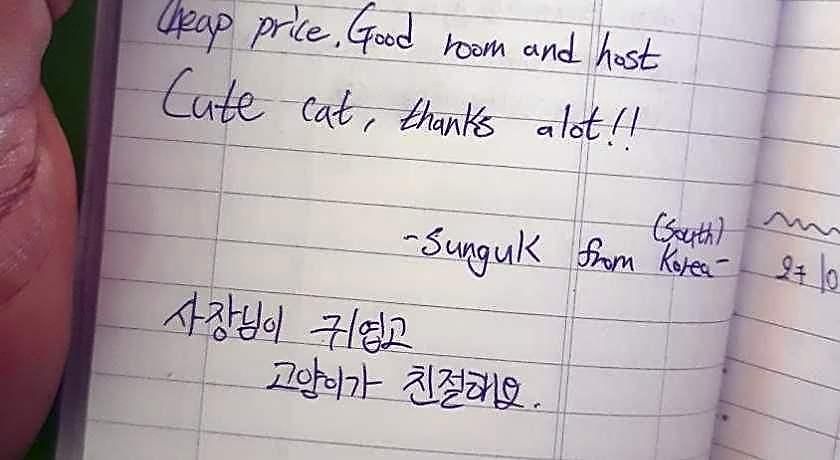 Cheap price. Good room and host
Cute cat, thanks alot!!
(South)
-Sunguk from Korea-
사장님이 귀엽고
고양이가 친절해요.